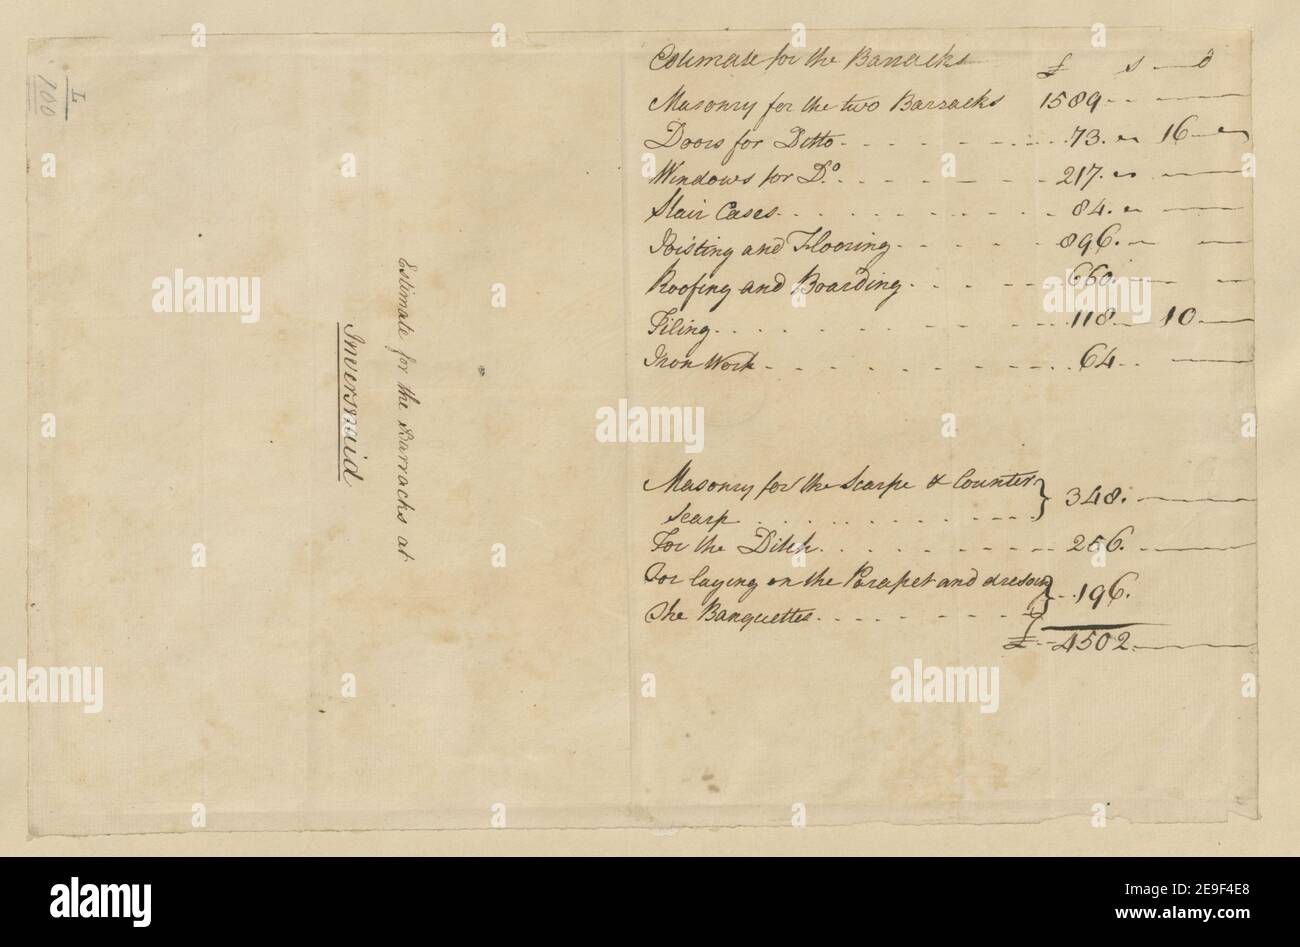 L
100
Estimate for the Barracks at
Inversnaid
Estimate for the Barracks £ s d
Masonry for the two Barracks 1589
Doors for Ditto 73 16
Windows for Do. 217
Stair Cases 84
Joisting and Flooring 896
Roofing and Boarding 660
Tiling 118 10
Iron Work 64
Masonry for the Scarpe & Counter
scarp 348
For the Ditch 256
For laying on the Parapet and
the Banquettes 196
£ 4502
alamy
Image ID: 2E9F4E8
www.alamy.com